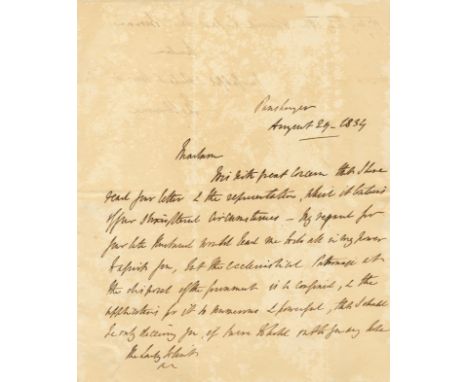 Panshanger
August 29 - 1834
Madam
It is with great concern that I have
read your letter & the representation, which it contains
of your straitened circumstances - My regard for
your late Husband would lead me to do all in my power
to assist you, but the ecclesiastical Patronage at
the disposal of the government is so confined, & the
applications for it so numerous & powerful, that I should
be only deceiving you if I were to hold out to you any
the